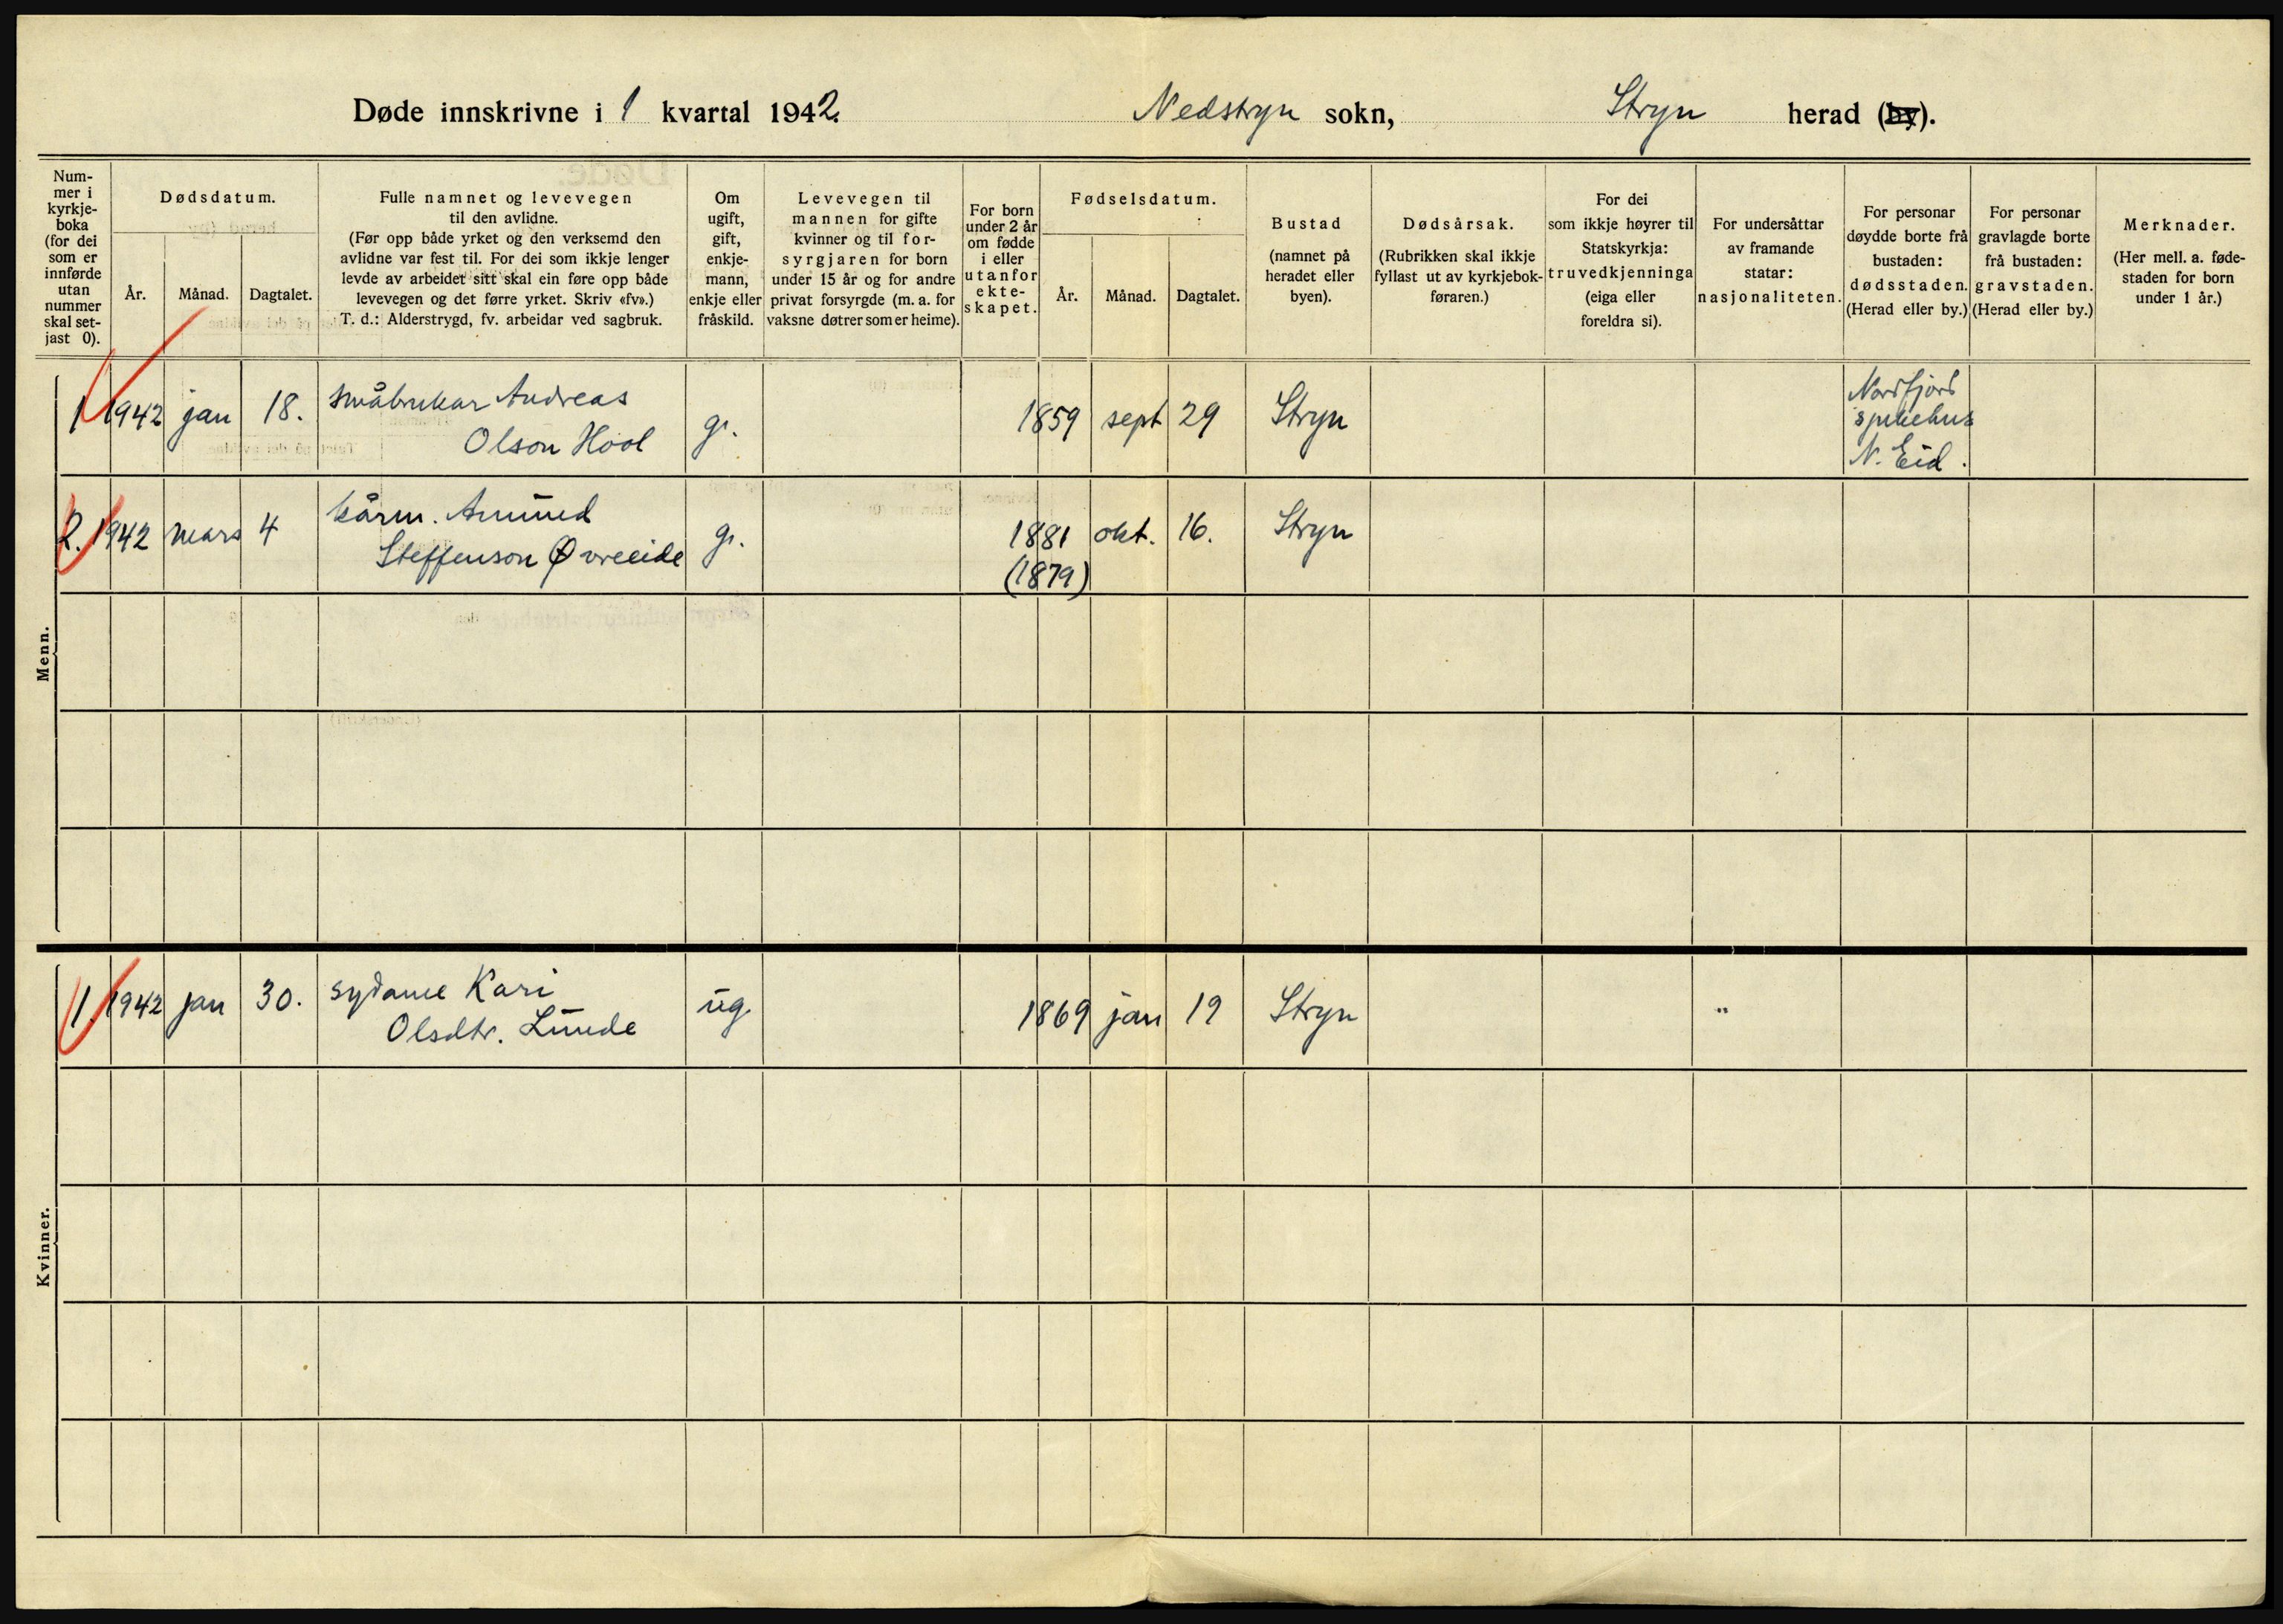 Døde innskrivne i 1 kvartal 1942. Nedstryn sokn, Stryn herad (by).
Num-
mer i
kyrkje-
boka
(for dei
som er
innførde
utan
nummer
skal set-
jast 0).
Dødsdatum.
År. Månad. Dagtalet.
Fulle namnet og levevegen
til den avlidne.
(Før opp både yrket og den verksemd den
avlidne var fest til. For dei som ikkje lenger
levde av arbeidet sitt skal ein føre opp både
levevegen og det førre yrket. Skriv «fv».)
T. d.: Alderstrygd, fv. arbeidar ved sagbruk.
Om
ugift,
gift,
enkje-
mann,
enkje eller
fråskild.
Levevegen til
mannen for gifte
kvinner og til for-
syrgjaren for born
under 15 år og for andre
privat forsyrgde (m. a. for
vaksne døtrer som er heime).
For born
under 2 år
om fødde
i eller
utanfor
ekte-
skapet.
Fødselsdatum.
År. Månad. Dagtalet.
Bustad
(namnet på
heradet eller
byen).
Dødsårsak.
(Rubrikken skal ikkje
fyllast ut av kyrkjebok-
føraren.)
For dei
som ikkje høyrer til
Statskyrkja:
truvedkjenninga
(eiga eller
foreldra si).
For undersåttar
av framande
statar:
nasjonaliteten.
For personar
døydde borte frå
bustaden:
dødsstaden.
(Herad eller by.)
For personar
gravlagde borte
frå bustaden:
gravstaden.
(Herad eller by.)
Merknader.
(Her mell. a. føde-
staden for born
under 1 år.)
Menn.
1 1942 jan 18. småbrukar Andreas
Olson Hool g. 1859 sept 29 Stryn
Nordfjord
sjukehus
N. Eid.
2. 1942 mars 4 kårm. Amund
Steffenson Øvreeide g. 1881 okt. 16. Stryn
(1879)
Kvinner.
1. 1942 jan 30. sydame Kari
Olsdtr. Lunde ug. 1869 jan 19 Stryn "